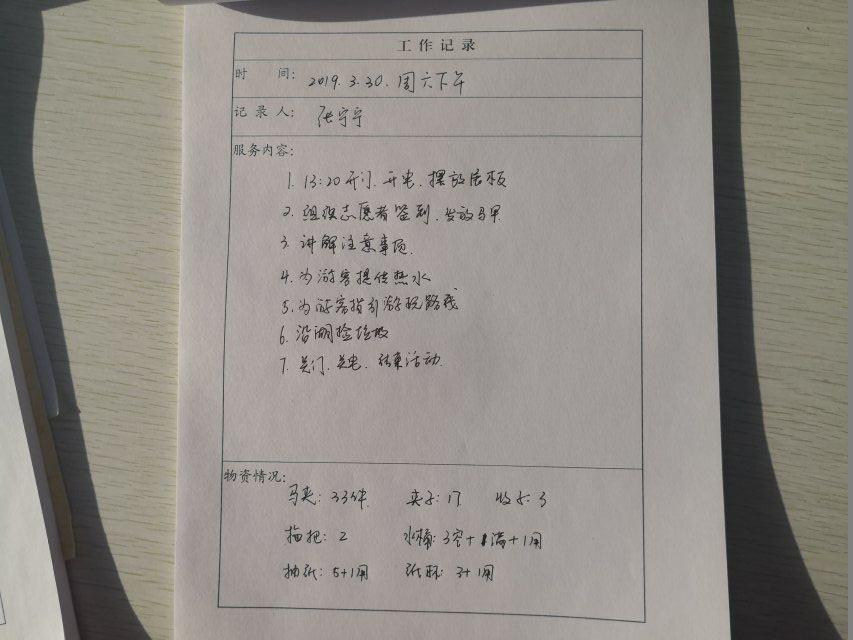 工作记录
时 间: 2019.3.30.周六下午
记录人: 张宁宁
服务内容:
1. 13:20开门、开电、摆放展板
2. 组织志愿者签到、发放马甲
3. 讲解注意事项.
4. 为游客提供热水
5. 为游客指引游玩路线
6. 沿湖捡垃圾
7. 关门、关电、结束活动.
物资情况:
马夹: 33件 夹子: 17 3
拖把: 2 水桶: 3空+1满+1用
抽纸: 5+1用 纸杯: 3+1用